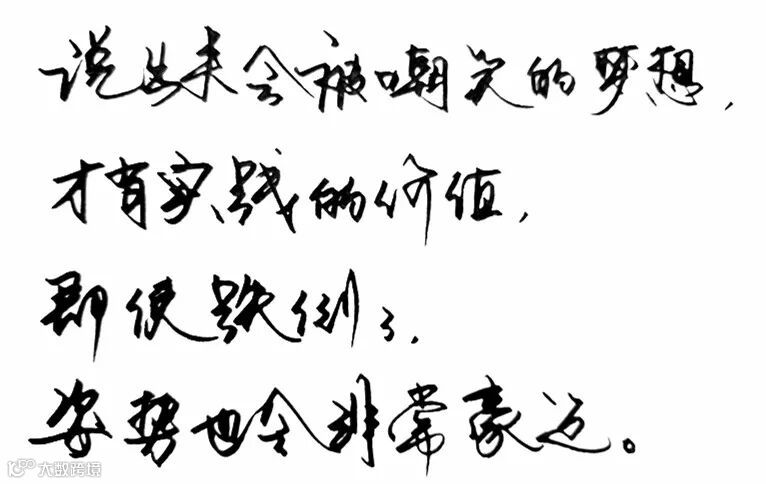 说出来会被嘲笑的梦想，
才有实践的价值，
即使跌倒了，
姿势也会非常豪迈。
大数跨境